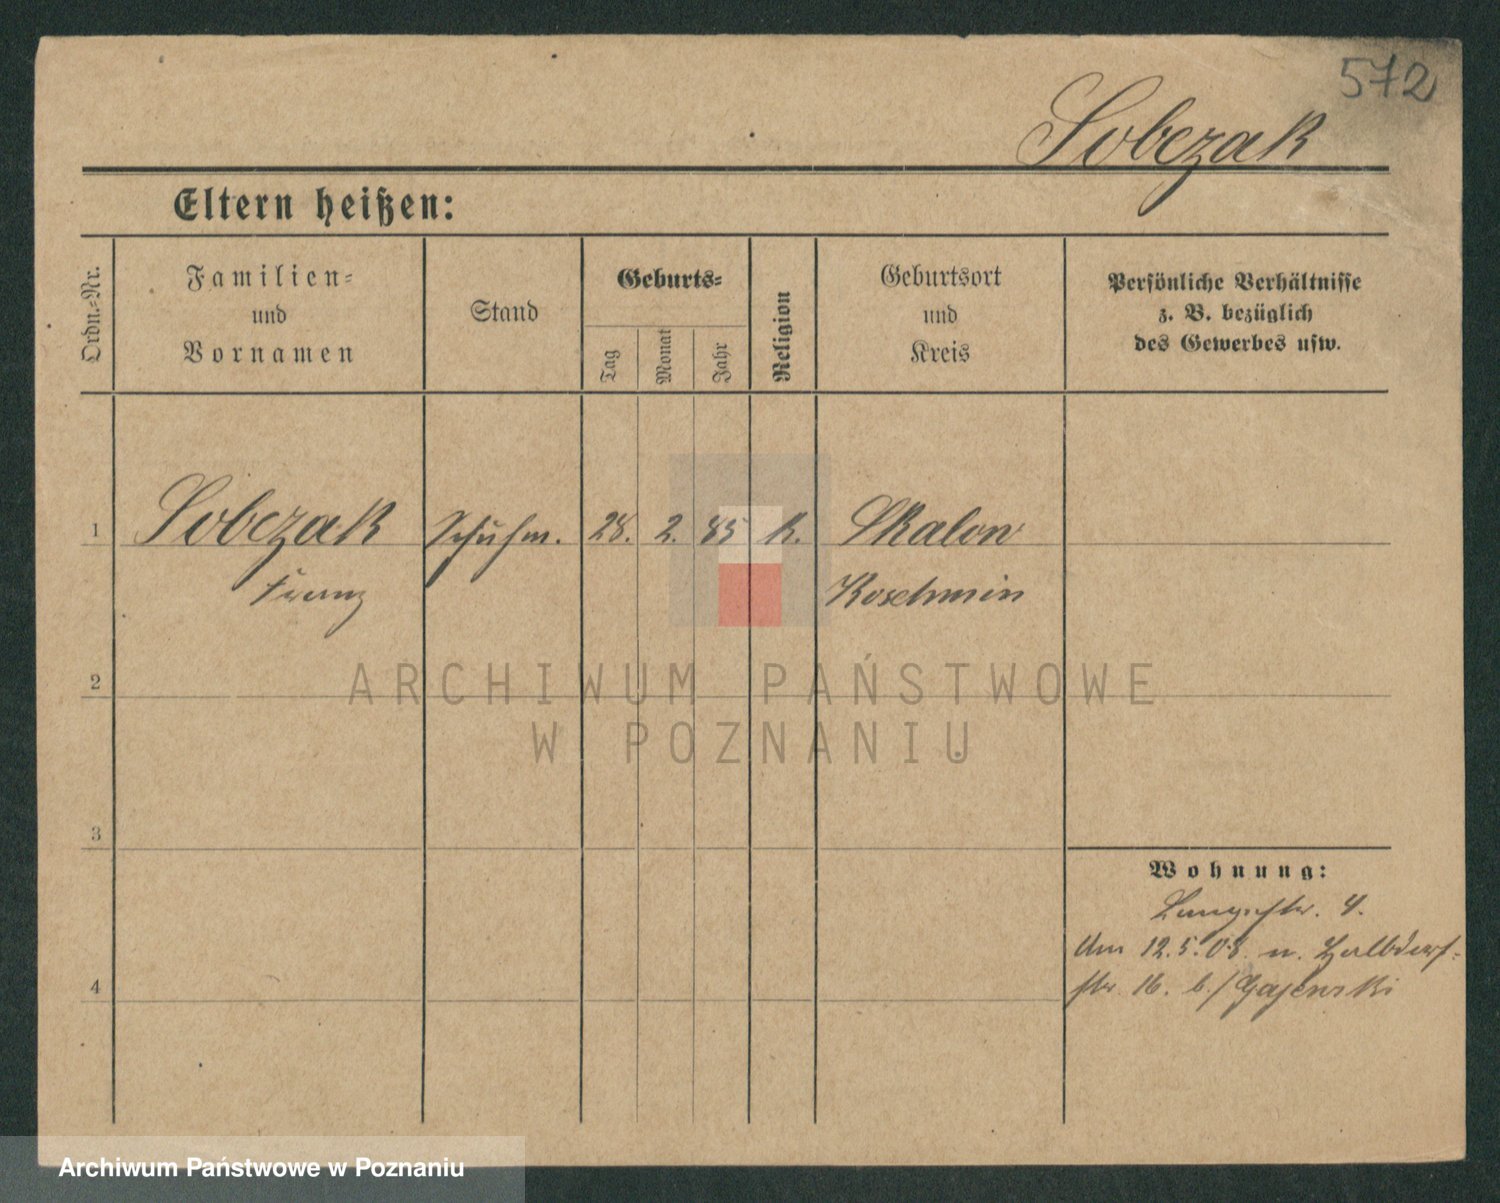 572
Sobczak
Eltern heißen:
Ordn.=Nr.
Familien=
und
Vornamen
Stand
Geburts=
Tag
Monat
Jahr
Religion
Geburtsort
und
Kreis
Persönliche Verhältnisse
z. B. bezüglich
des Gewerbes usw.
1
Sobczak
Franz
Schuhm.
28.
2.
85
K.
Skalow
Koschmin
2
3
4
ARCHIWUM PAŃSTWOWE
W POZNANIU
Wohnung:
Langestr. 4.
Um 12.5.08. n. Halbdorf=
str 16. b./Gajewski
Archiwum Państwowe w Poznaniu